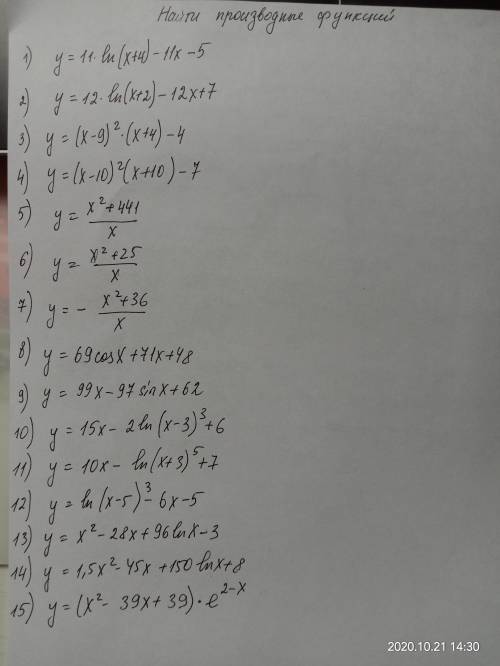 Найти производные функций
1) y = 11·ln(x+4) – 11x – 5
2) y = 12·ln(x+2) – 12x + 7
3) y = (x–9)²·(x+4) – 4
4) y = (x–10)²(x+10) – 7
5) y = (x²+441)/x
6) y = (x²+25)/x
7) y = – (x²+36)/x
8) y = 69cosx + 71x + 48
9) y = 99x – 97sinx + 62
10) y = 15x – 2ln(x–3)³ + 6
11) y = 10x – ln(x+3)⁵ + 7
12) y = ln(x–5)³ – 6x – 5
13) y = x² – 28x + 96lnx – 3
14) y = 1,5x² – 45x + 150lnx + 8
15) y = (x² – 39x + 39)·e²⁻ˣ
2020.10.21 14:30